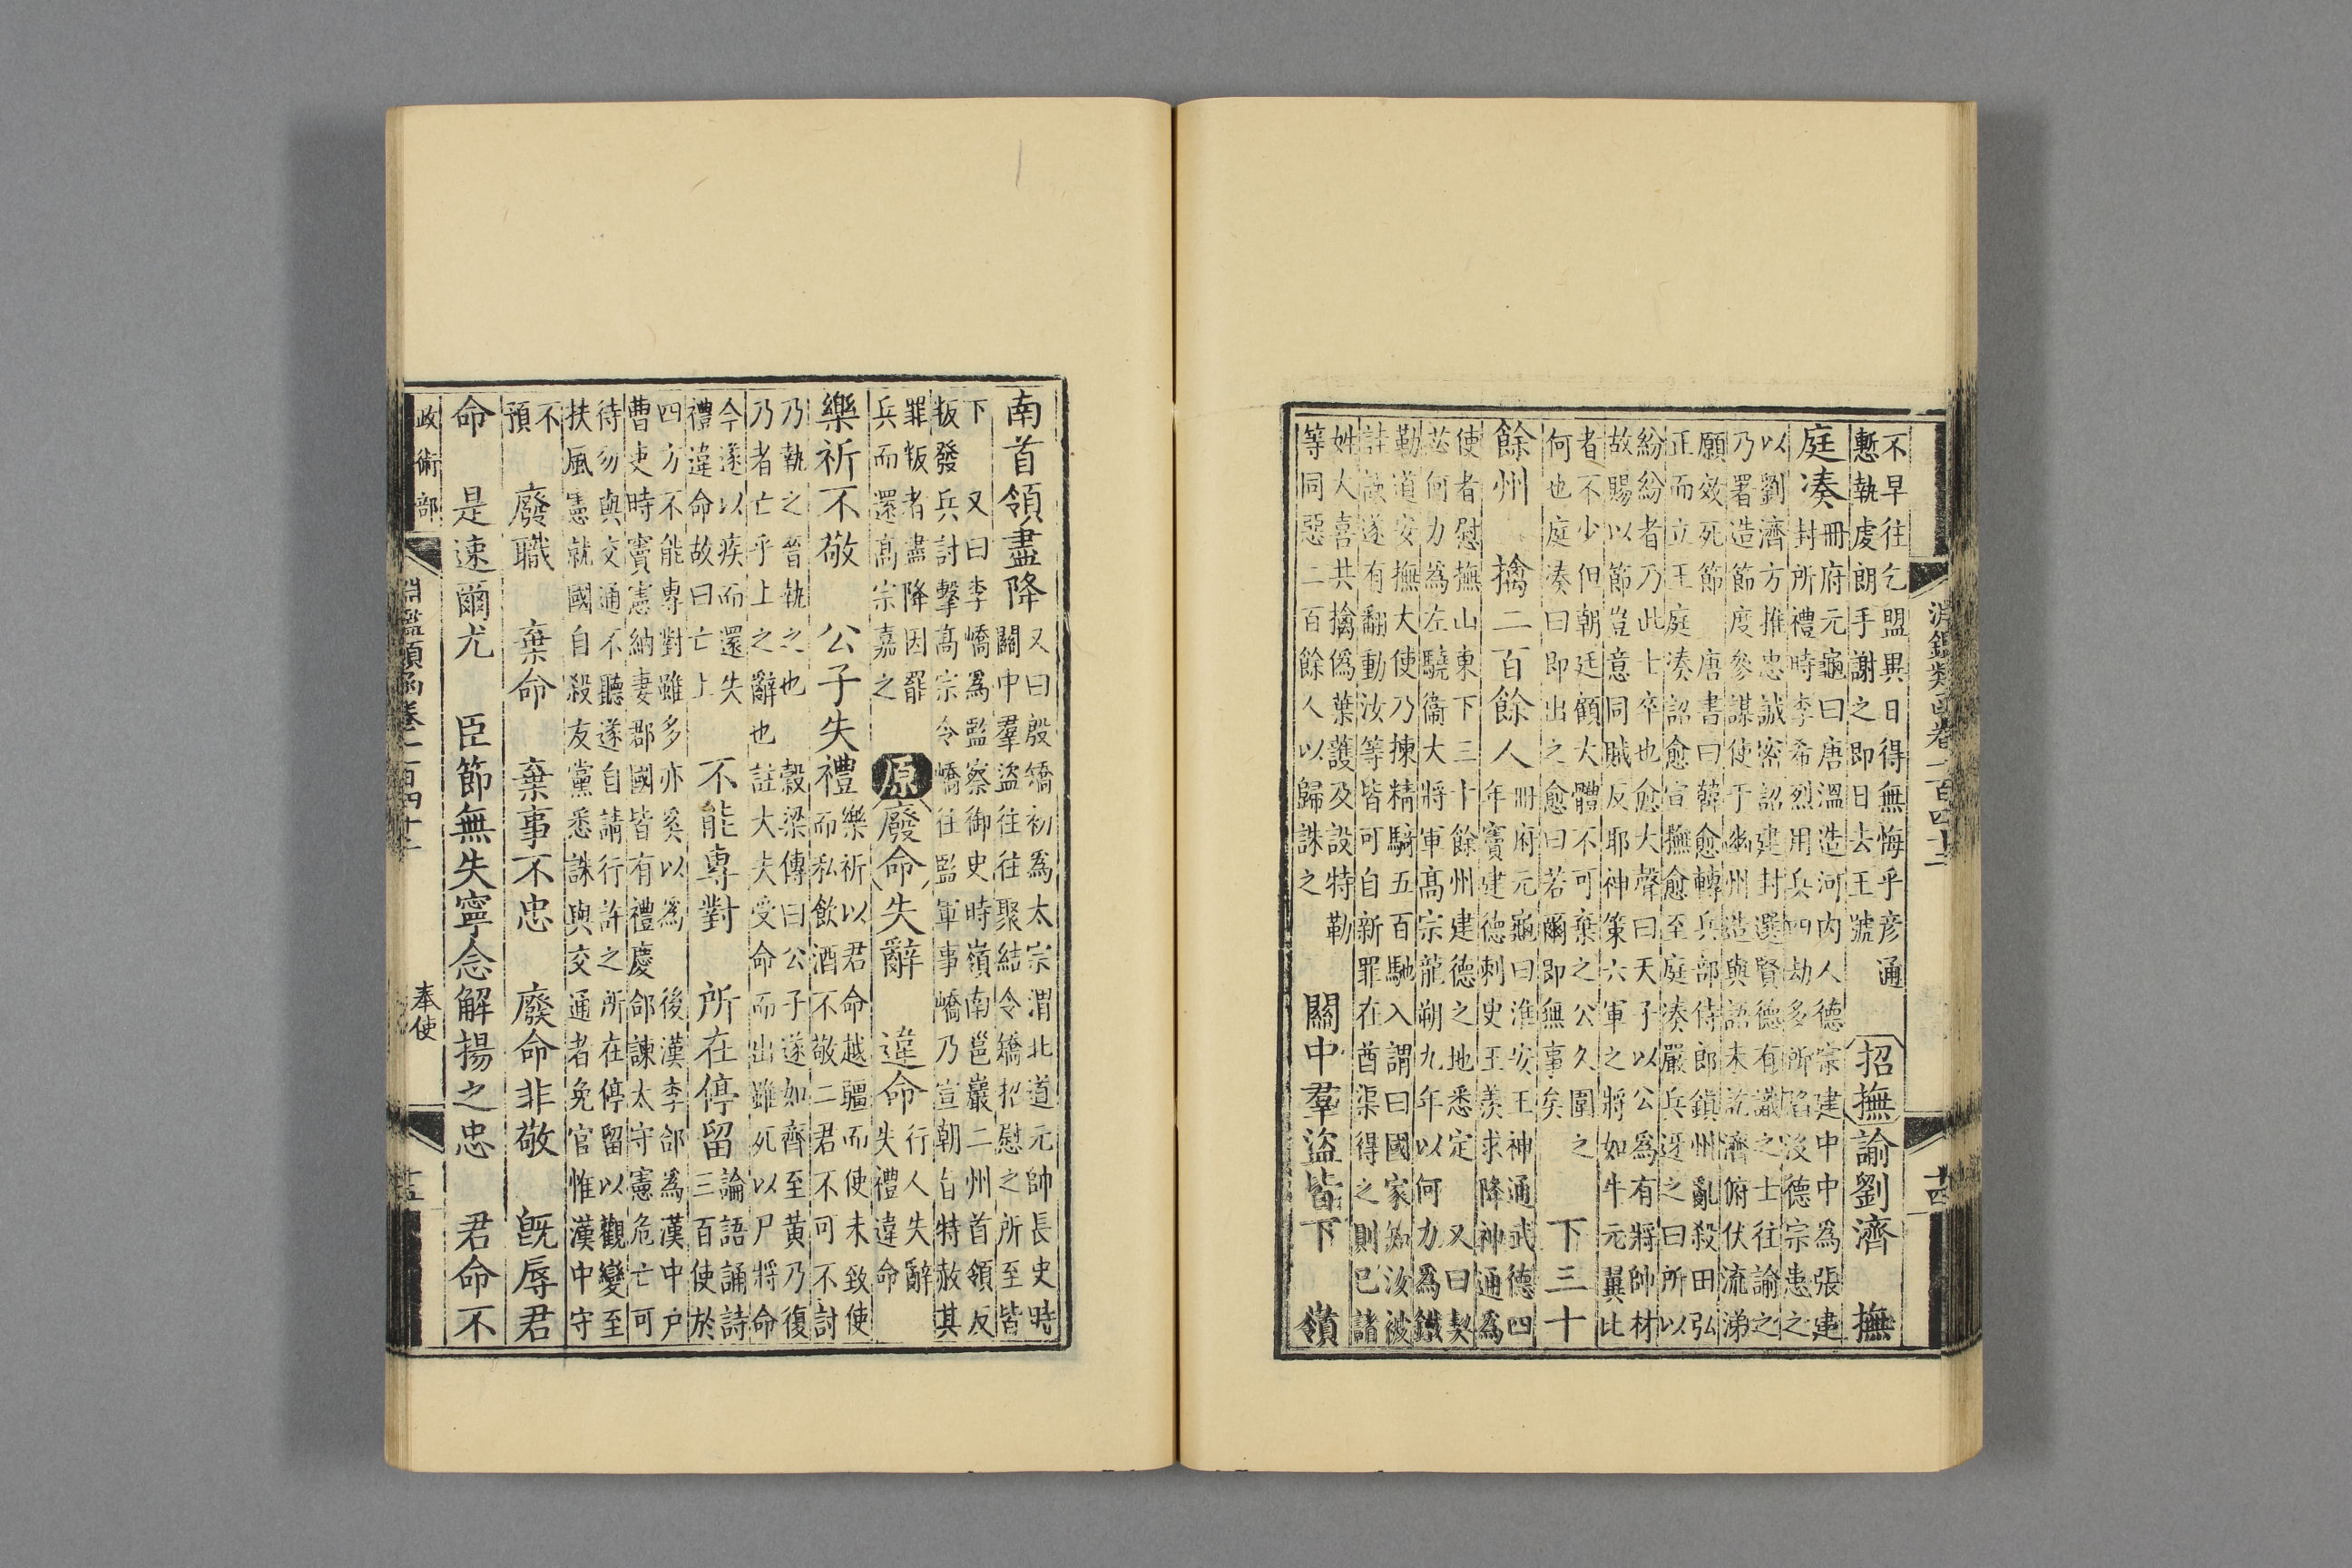 淵鑑類函卷一百四十三
十四
不早往乞盟異日得無悔乎彥通
慙執虔朗手謝之即日去王號
招撫 諭劉濟 撫
庭湊
冊府元龜曰唐溫造河内人德宗建中中為張建
封所禮時李希烈用兵四劫多所陷沒德宗患之
以劉濟方推忠誠密詔建封選賢德有識之士往諭之
乃署造節度參謀使于幽州造與語未訖濟俯伏流涕
願效死節 唐書曰韓愈轉兵部侍郎鎮州亂殺田弘
正而立王庭湊詔愈宣撫愈至庭湊嚴兵迓之曰所以
紛紛者乃此士卒也愈大聲曰天子以公為有將帥材
故賜以節豈意同賊反耶神策六軍之將如牛元翼此
者不少但朝廷顧大體不可棄之公久圍之
何也庭湊曰即出之愈曰若爾即無事矣
下三十
餘州 擒二百餘人
冊府元龜曰淮安王神通武德四
年竇建德刺史王羨求降神通為
使者慰撫山東下三十餘州建德之地悉定 又曰契
苾何力為左驍衞大將軍高宗龍朔九年以何力為鐵
勒道安撫大使乃揀精騎五百馳入謂曰國家知汝被
詿誤遂有翻動汝等皆可自新罪在酋渠得之則已諸
姓大喜共擒偽葉護及設特勒
等同惡二百餘人以歸誅之
關中羣盜皆下 嶺
南首領盡降
又曰殷矯初為太宗渭北道元帥長史時
關中羣盜往往聚結令矯招慰之所至皆
下 又曰李嶠為監察御史時嶺南邕巖二州首領反
叛發兵討擊高宗令嶠往監軍事嶠乃宣朝旨特赦其
罪叛者盡降因罷
兵而還高宗嘉之
原 廢命失辭 違命
行人失辭
失禮違命
樂祈不敬 公子失禮
樂祈以君命越疆而使未致使
而私飲酒不敬二君不可不討
乃執之晉執之也 穀梁傳曰公子遂如齊至黃乃復
乃者亡乎上之辭也 註大夫受命而出雖死以尸將命
今遂以疾而還失
禮違命故曰亡上
不能專對 所在停留
論語誦詩
三百使於
四方不能專對雖多亦奚以為 後漢李郃為漢中戶
曹吏時竇憲納妻郡國皆有禮慶郃諫太守憲危亡可
待勿與交通不聽遂自請行許之所在停留以觀變至
扶風憲就國自殺友黨悉誅與交通者免官惟漢中守
不
預
廢職 棄命 棄事不忠 廢命非敬 既辱君
命 是速爾尤 臣節無失寧念解揚之忠 君命不
政術部
淵鑑類函卷一百四十三
奉使